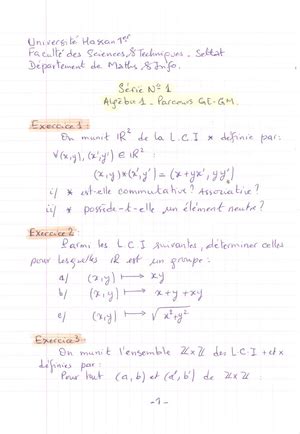 Université Hassan 1er
Faculté des Sciences & Techniques - Settat
Département de Maths & Info.
Série N° 1
Algèbre 1 - Parcours GE-GM.
Exercice 1 :
On munit ℝ² de la L.C.I * définie par :
∀(x,y), (x',y') ∈ ℝ² :
(x,y)*(x',y') = (x+yx', yy')
i/ * est-elle commutative ? Associative ?
ii/ * possède-t-elle un élément neutre ?
Exercice 2 :
Parmi les L.C.I suivantes, déterminer celles
pour lesquelles ℝ est un groupe :
a/ (x,y) ⟼ xy
b/ (x,y) ⟼ x+y+xy
c/ (x,y) ⟼ √x²+y²
Exercice 3 :
On munit l'ensemble ℤ×ℤ des L.C.I + et ×
définies par :
Pour tout (a,b) et (a',b') de ℤ×ℤ :
-1-